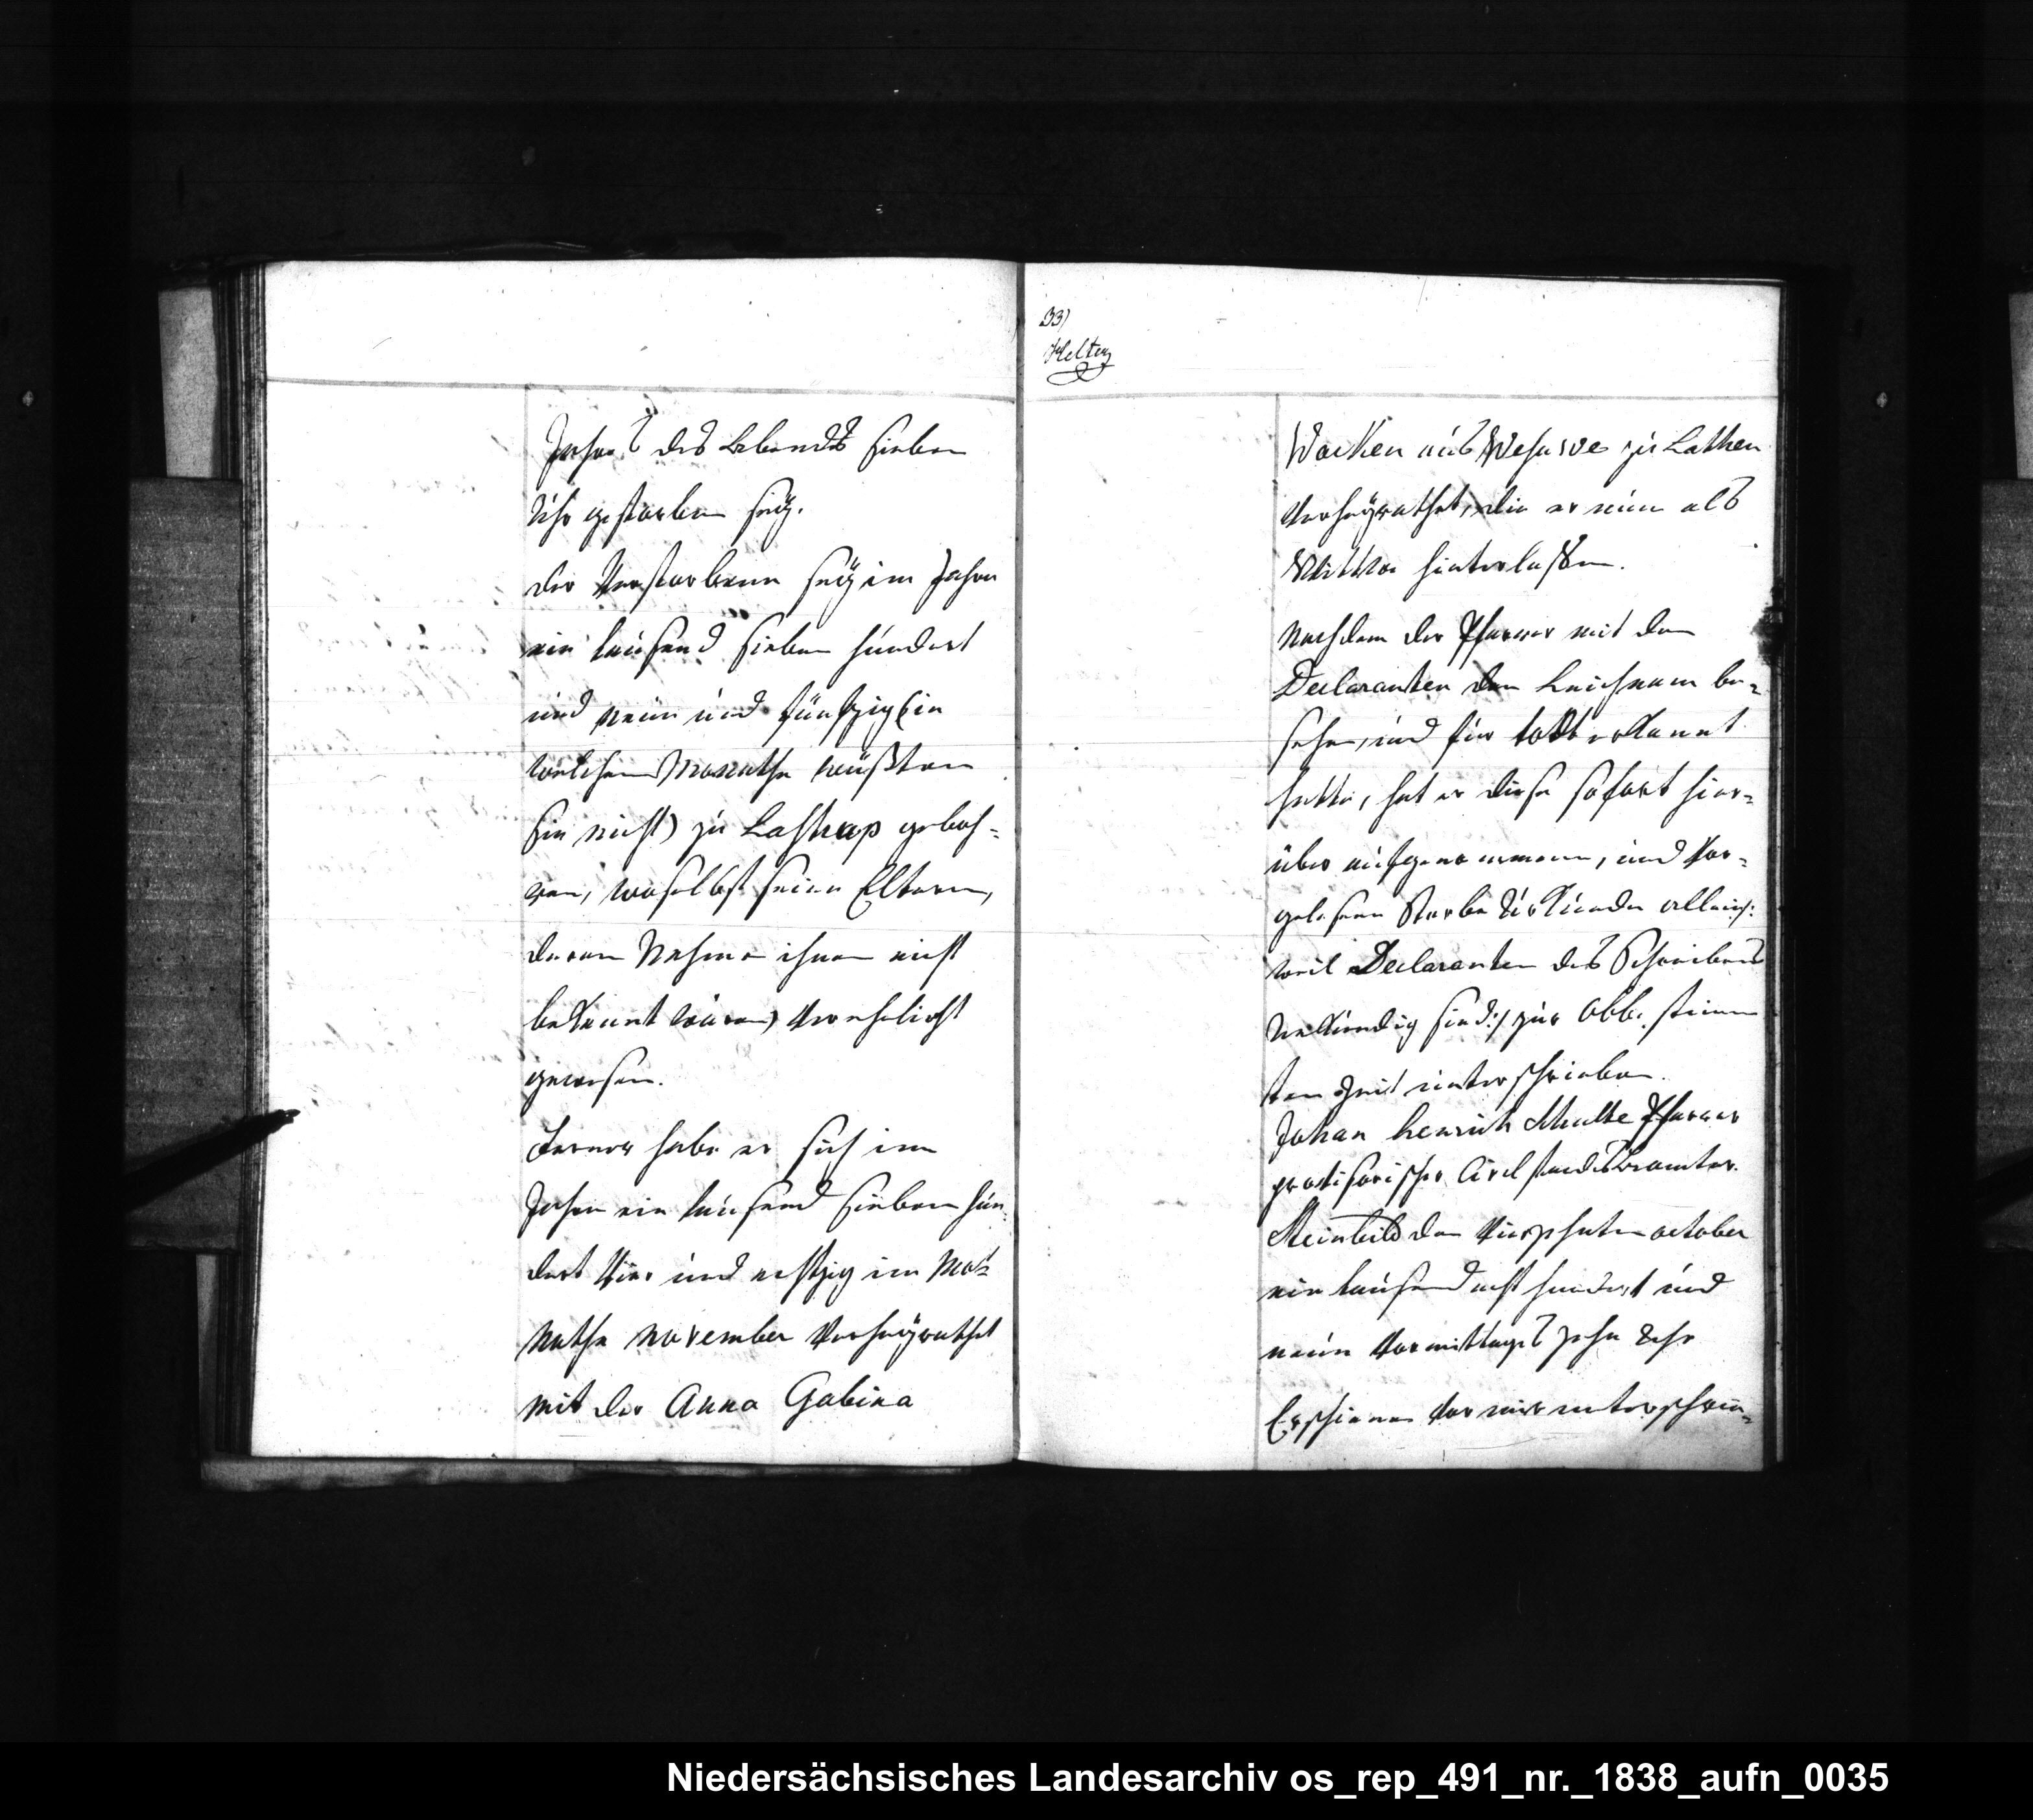 Jahres des Abends sieben
Uhr gestorben seÿ.
der Verstorbene seÿ im Jahre
ein tausend sieben hundert
und neun und fünfzig (in
welchem Monathe wüßten
sie nicht) zu Lastrup geboh-
ren, woselbst seine Eltern,
deren Nahme ihnen nicht
bekannt wären) verehelicht
gewesen.
Ferner habe er sich im
Jahre ein tausend sieben hun-
dert vier und achtzig im Mo-
nathe november verheÿrathet
mit der Anna Gabina
33)
Helten
aus zu Lathen
verheÿrathet, die er nun als
Wittwe hinterlaßen.
Nachdem der Pfarrer mit den
Declaranten den Leichnam be-
sehen, und für todt erkannt
hatte, hat er diese sofort hier-
über aufgenommene, und vor-
gelesene Sterbe Urkunde allein /:
weil Declaranten des Schreibens
unkundig sind :/ zur obbestimm
ten Zeit unterschrieben.
Johan henrich Schulte Pfarrer
provisorischer Civilstandsbeamter.
Steinbild den vierzehnten october
ein tausend acht hundert und
neun Vormittags zehn Uhr
Erschienen vor mir unterschrie-
Niedersächsisches Landesarchiv os_rep_491_nr._1838_aufn_0035